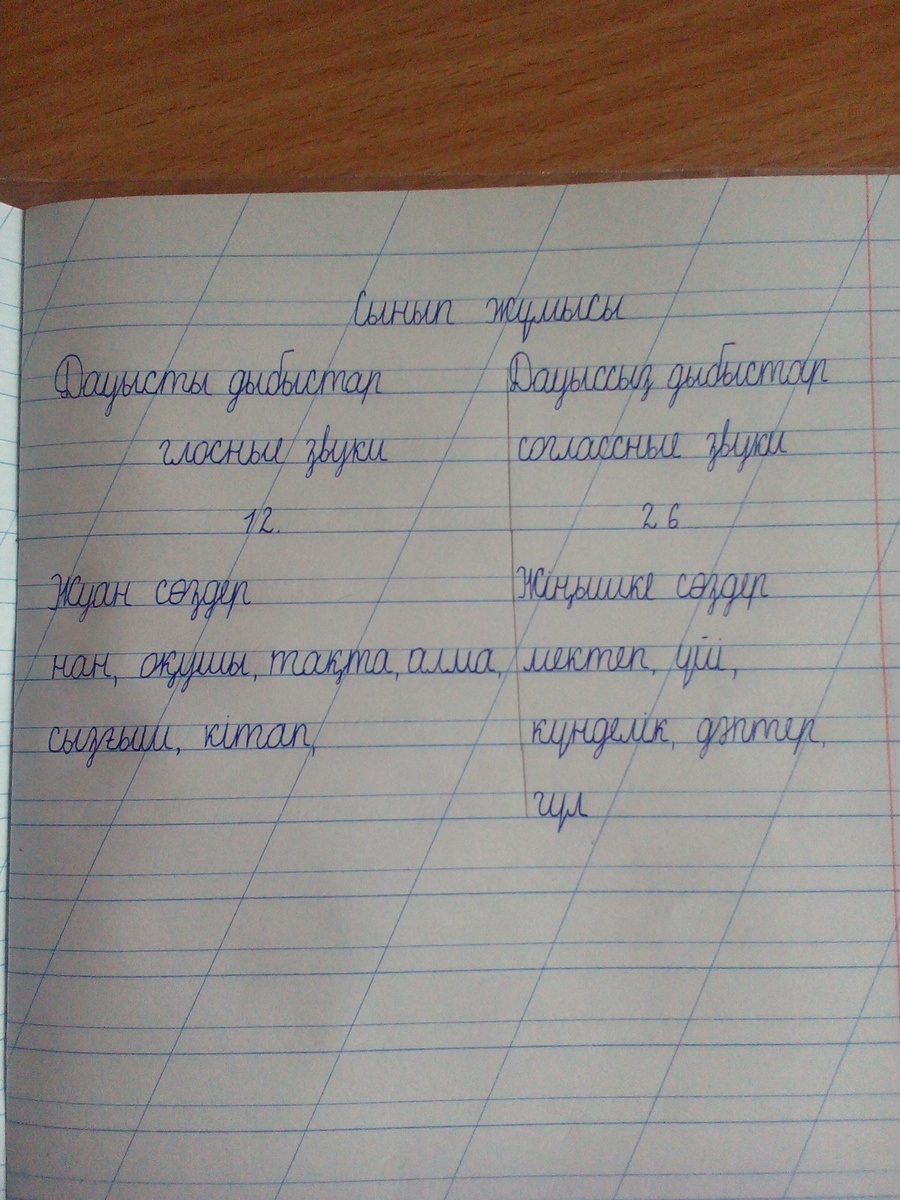 Сынып жұмысы
Дауысты дыбыстар
Дауыссыз дыбыстар
гласные звуки
соглассные звуки
12.
26
Жуан сөздер
Жіңышке сөздер
нан, оқушы, тақта, алма,
мектеп, үй,
сызғыш, кітап,
күнделік, дәптер,
гүл